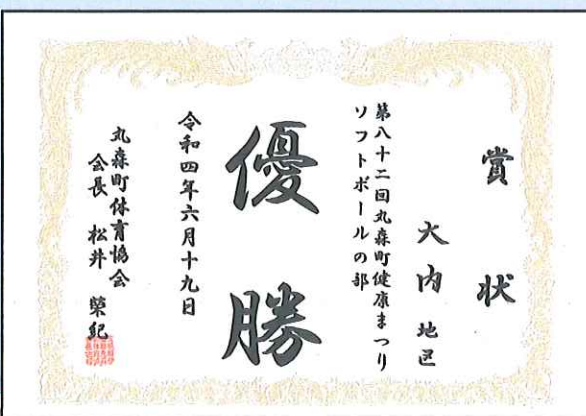 賞状
大内地区
第八十二回丸森町健康まつり
ソフトボールの部
優勝
令和四年六月十九日
丸森町体育協会
会長 松井 榮紀